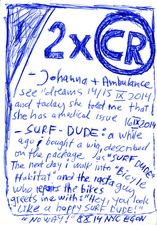 2x CR
- Johanna + Ambulance
see "dreams 14/15 IX 2014
and today she told me that I
she has a medical issue 16 IX 2014
- SURF-DUDE: a while
ago I bought a wig, described
on the package as "SURF DUDE"
The next day I walk into "Bicycle
Habitat" and the rasta guy
who repairs the bikes
greets me with "Hey, you look
like a happy SURF DUDE!"
"NO WAY!" 8 14 NYC BGAN